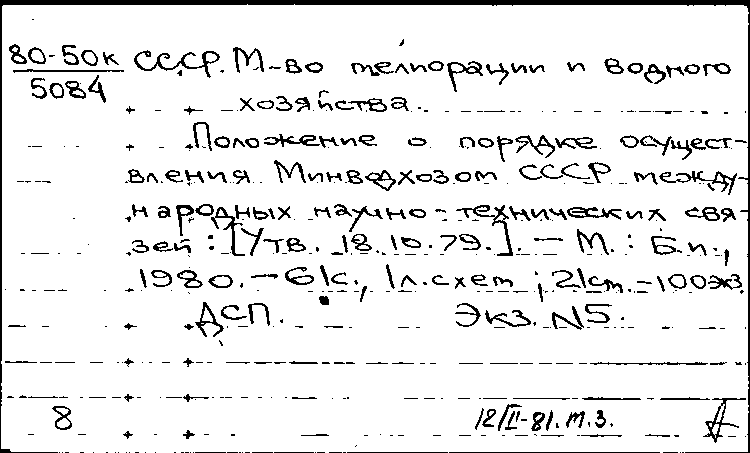 80-50к СССР. М-во мелиорации и водного
5084 хозяйства.
Положение о порядке осущест-
вления Минводхозом СССР между-
народных научно-технических свя-
зей: [Утв. 18.10.79.]. — М.: Б.и.,
1980. — 61с., 1л.схем; 21см. - 100экз.
ДСП. Экз. N5.
8 12/II-81. м.з.